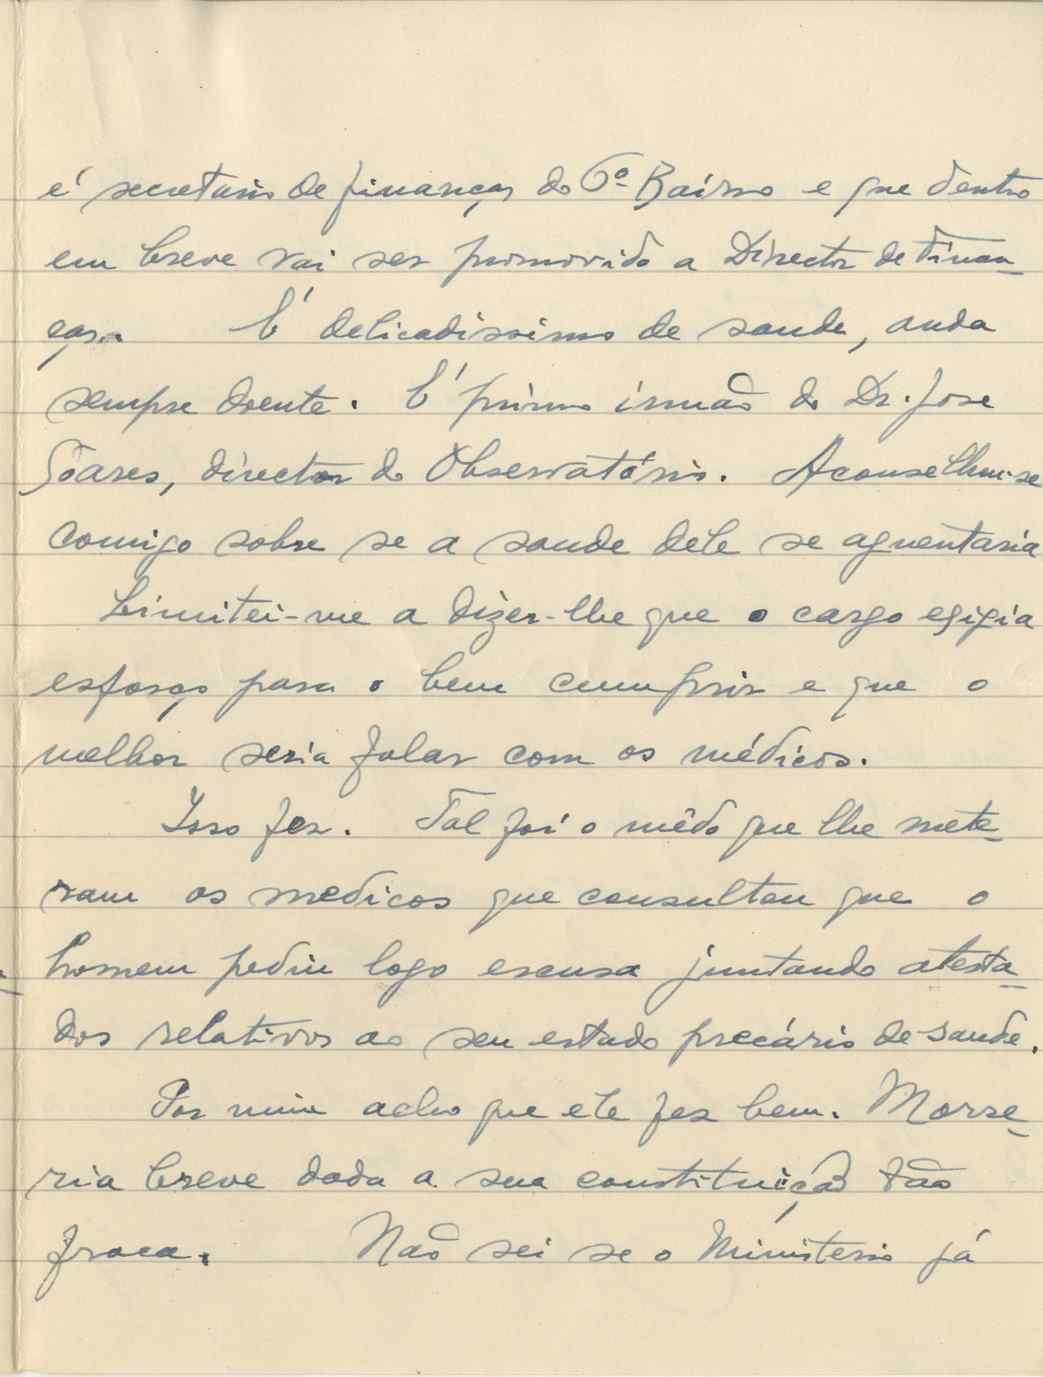 é secretario de finanças do 6º Bairro e que dentro
em breve vai ser promovido a Director de Finan-
ças. É delicadissimo de saude, anda
sempre doente. É primo irmão do Dr. Jose
Soares, director do Observatório. Aconselhou-se
comigo sobre se a saude dele se aguentaria
Limitei-me a dizer-lhe que o cargo egigia
esforço para o bem cumprir e que o
melhor seria falar com os médicos.
Isso fez. Tal foi o mêdo que lhe mete-
ram os medicos que consultou que o
homem pediu logo escusa juntando atesta-
dos relativos ao seu estado precário de saude.
Por mim acho que ele fez bem. Morre-
ria breve dada a sua constituição tão
fraca. Não sei se o Ministerio já